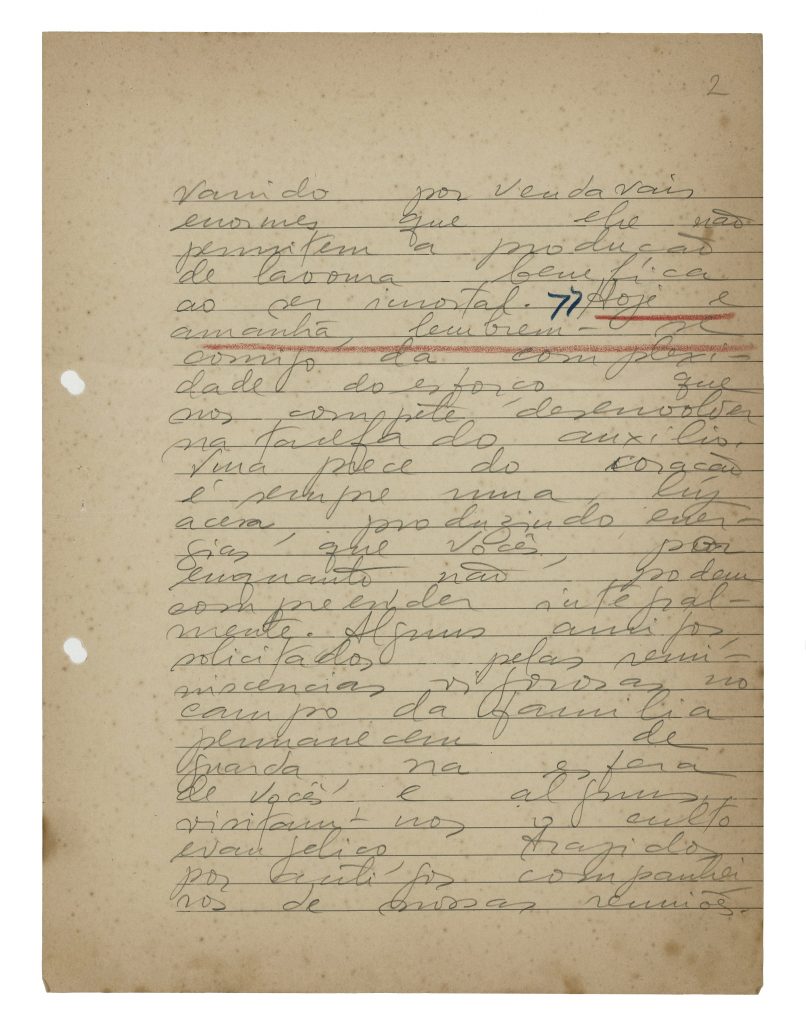 2
varrido por vendavais
enormes que lhe não
permitem a produção
de lavoura benéfica
ao ser imortal. Hoje e
amanhã, lembrem-se
comigo da complexi-
dade do esforço que
nos compéte desenvolver
na tarefa do auxílio.
Uma prece do coração
é sempre uma luz
acesa, produzindo ener-
gias que vocês, por
enquanto não podem
compreender integral-
mente. Alguns amigos,
solicitados pelas remi-
niscencias vigorosas no
campo da família
permanecem de
guarda na esfera
de vocês e alguns
visitam-nos o culto
evangelico, trazidos
por antigos companhei
ros de nossas reuniões.